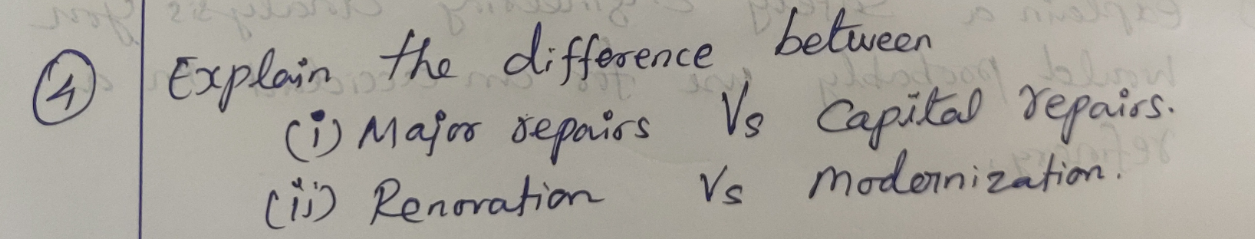 4 Explain the difference between
(i) Major repairs Vs Capital repairs.
(ii) Renovation Vs Modernization.